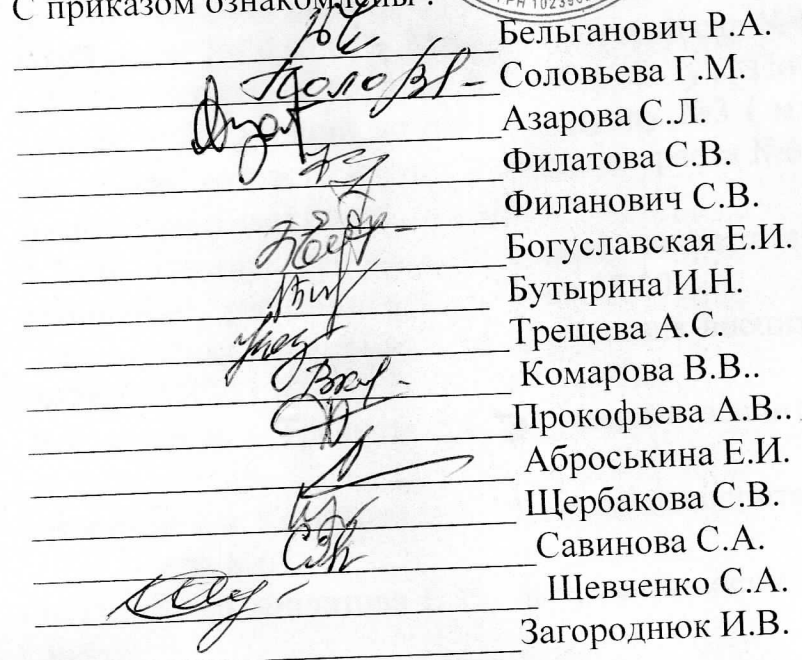 С приказом ознакомлены :
Бельганович Р.А.
Соловьева Г.М.
Азарова С.Л.
Филатова С.В.
Филанович С.В.
Богуславская Е.И.
Бутырина И.Н.
Трещева А.С.
Комарова В.В..
Прокофьева А.В..
Аброськина Е.И.
Щербакова С.В.
Савинова С.А.
Шевченко С.А.
Загороднюк И.В.